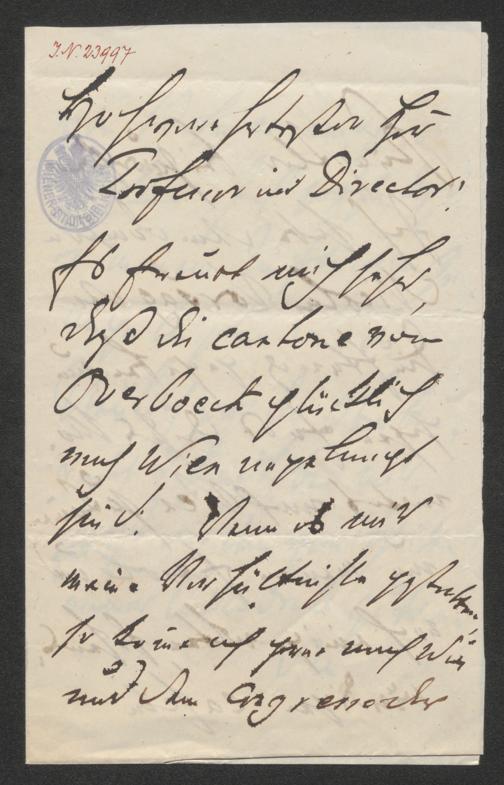 J.N. 23997
Hochgeehrtester Herr
Professor und Director!
Es freut mich sehr,
daß die cartone von
Overbeck glücklich
nach Wien angelangt
sind! Wenn es mir
meine Verhältniße gestatten,
so komme ich gerne nach Wien
und dem